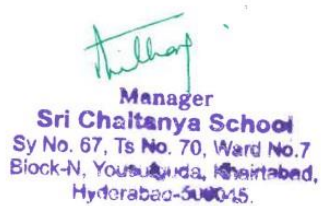 Manager
Sri Chaitanya School
Sy No. 67, Ts No. 70, Ward No.7
Block-N, Yousufguda, Khairtabad,
Hyderabad-500045.